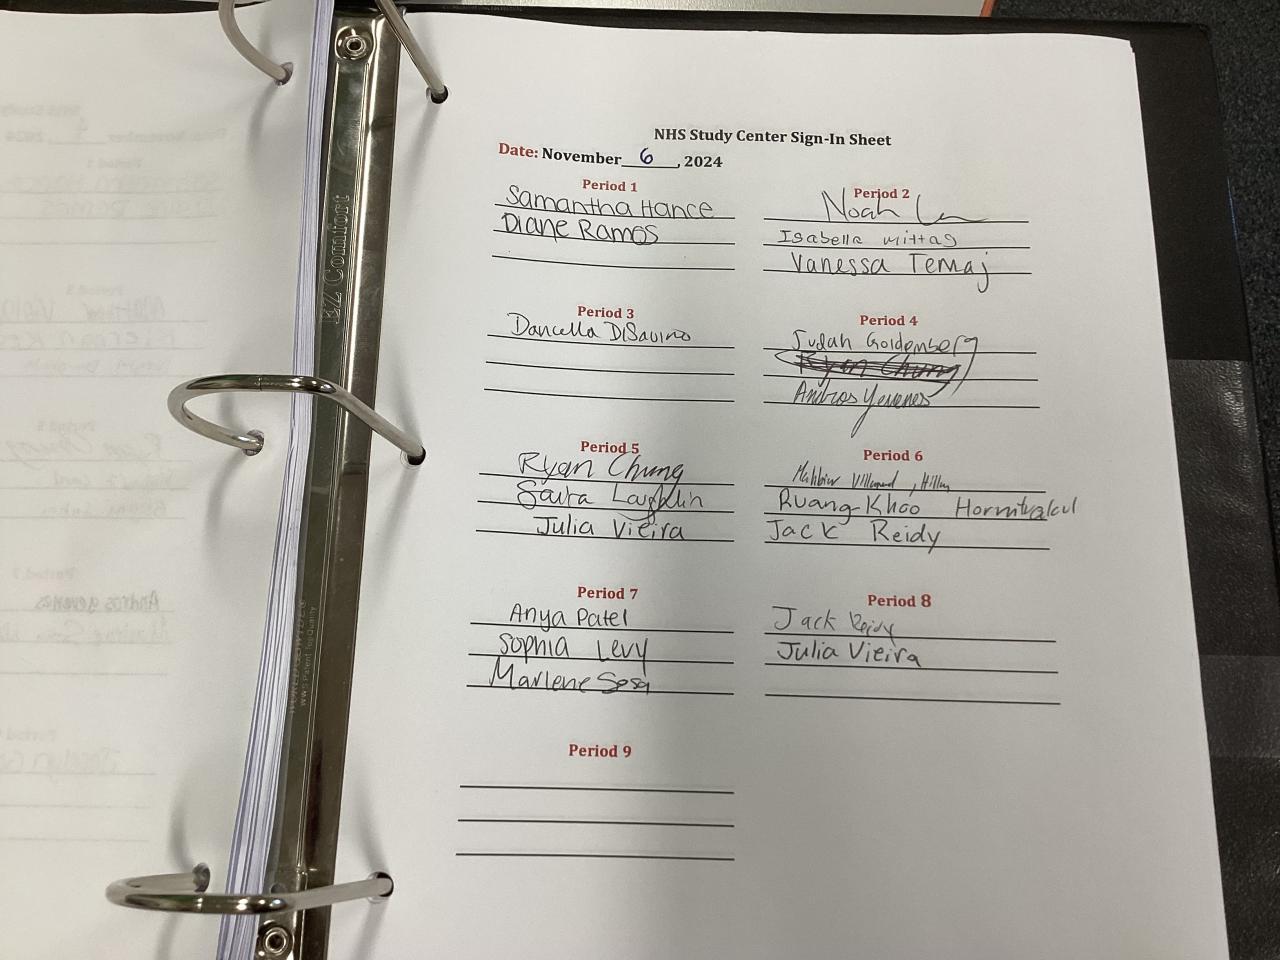 NHS Study Center Sign-In Sheet
Date: November 6, 2024
Period 1
Samantha Hance
Diane Ramos
Period 2
Noah
Isabella Mittag
Vanessa Temaj
Period 3
Dancella DiSavino
Period 4
Judah Goldemberg
Ryan Chung
Andros Yevenes
Period 5
Ryan Chung
Saira Laughlin
Julia Vieira
Period 6
Ruang-Khao
Jack Reidy
Period 7
Anya Patel
Sophia Levy
Marlene Sosa
Period 8
Jack Reidy
Julia Vieira
Period 9
EZ Comfort